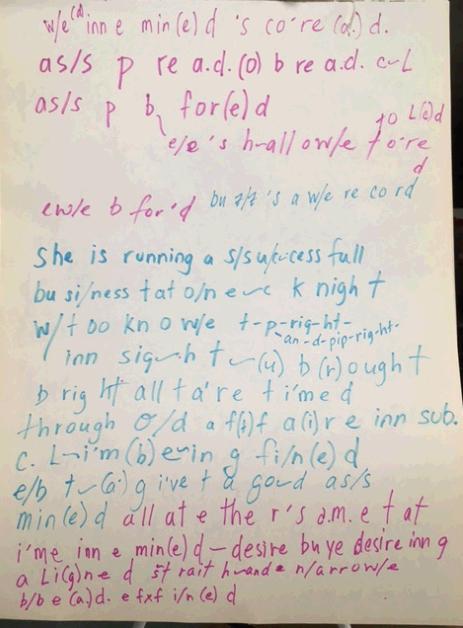 w/e(d) inn e min(e) d 's co're (d.) d.
as/s p re a.d.(o) b re a.d. c-L
as/s p b, for(e) d
to L(o)d
e/e's h-allow/e to're
d
ew/e b for'd bu z/z 's a w/e re cord
She is running a s/su/ccess full
bu si/ness tat o/n e-c k nigh t
w/t oo kn o w/e t-p-rig-ht-
an-d-pip-right-
inn sigh-h t-(u) b(r)ough t
b rig ht all ta're ti'me d
through o/d a f(i)f a(i)r e inn sub.
c. L-i'm(b)e-in g fi/n(e) d
e/b t-(a) g ive't a go-d as/s
min(e) d all at e the r's a.m. e t at
i'me inn e min(e) d-desire bu ye desire inn g
a Li(g)ne d st rait h-and e n/arrow/e
b/b e (a.)d. e fxf i/n(e) d